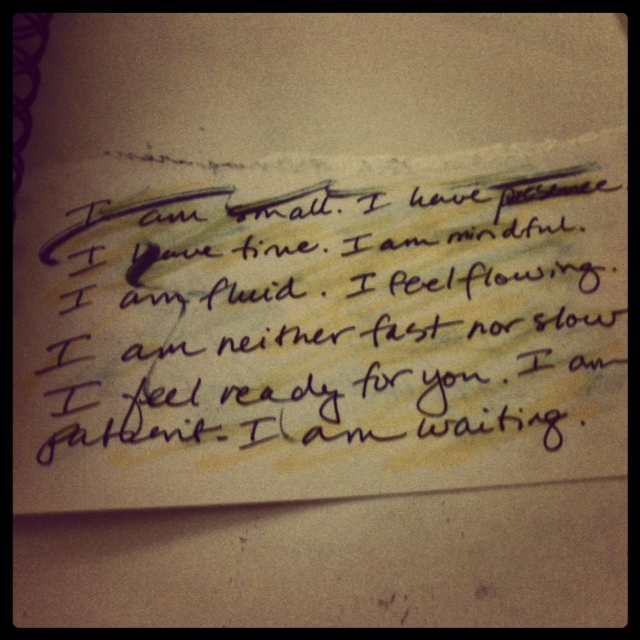 I am small. I have presence
I have time. I am mindful.
I am fluid. I feel flowing.
I am neither fast nor slow
I feel ready for you. I am
patient. I am waiting.